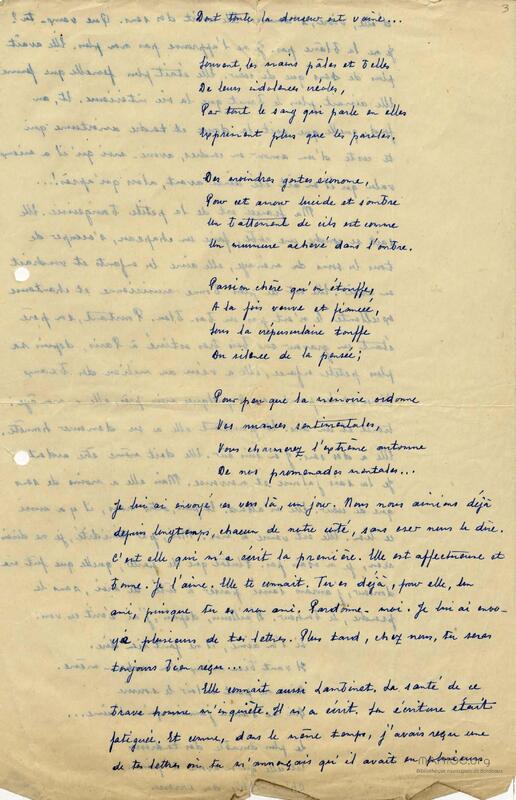 3
Dont toute la douceur est vaine...
Souvent, les mains pâles et belles
De leurs indolences
Par tout le sang qui parle en elles
Expriment plus que les paroles.
Des moindres gestes économe,
Pour cet amour lucide et sombre
Un battement de cils est comme
Un murmure achevé dans l'ombre.
Passion chère qu'on étouffe,
A la fois veuve et fiancée,
Sous la crépusculaire touffe
Du silence de la pensée;
Pour peu que la mémoire ordonne
Vos nuances sentimentales,
Vous charmerez l'extrême automne
De nos promenades mentales...
Je lui ai envoyé ces vers là, un jour. Nous nous aimions déjà
depuis longtemps, chacun de notre côté, sans oser nous le dire.
C'est elle qui m'a écrit la première. Elle est affectueuse et
bonne. Je l'aime. Elle te connait. Tu es déjà, pour elle, un
ami, puisque tu es mon ami. Pardonne-moi. Je lui ai envo-
yé plusieurs de tes lettres. Plus tard, chez nous, tu seras
toujours bien reçu...
Elle connait aussi Lambinet. La santé de ce
brave homme m'inquiète. Il m'a écrit. Son écriture était
fatiguée. Et comme, dans le même temps, j'avais reçu une
de tes lettres où tu m'annonçais qu'il avait eu plusieurs
Bibliothèque municipale de Bordeaux